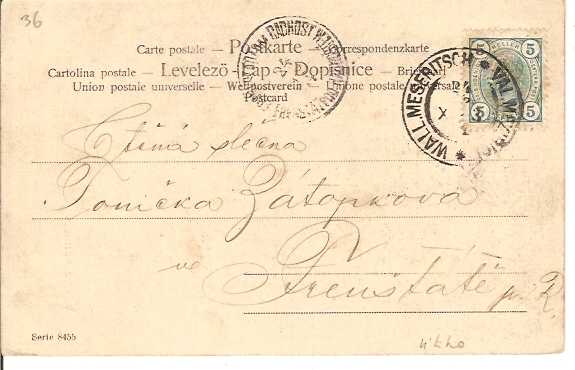 36
Carte postale — Postkarte — Correspondenzkarte
Cartolina postale — Levelező-Lap — Dopisnice — Brief
Union postale universelle — Weltpostverein — Unione postale universale
Postcard
5 HELLER 5
5 5
WALL. MESERITSCH * VAL. MEZ
RADHOST
Ctěná slečna
Tonička Zátopkova
ve Frenštátě p. R.
Serie 8455